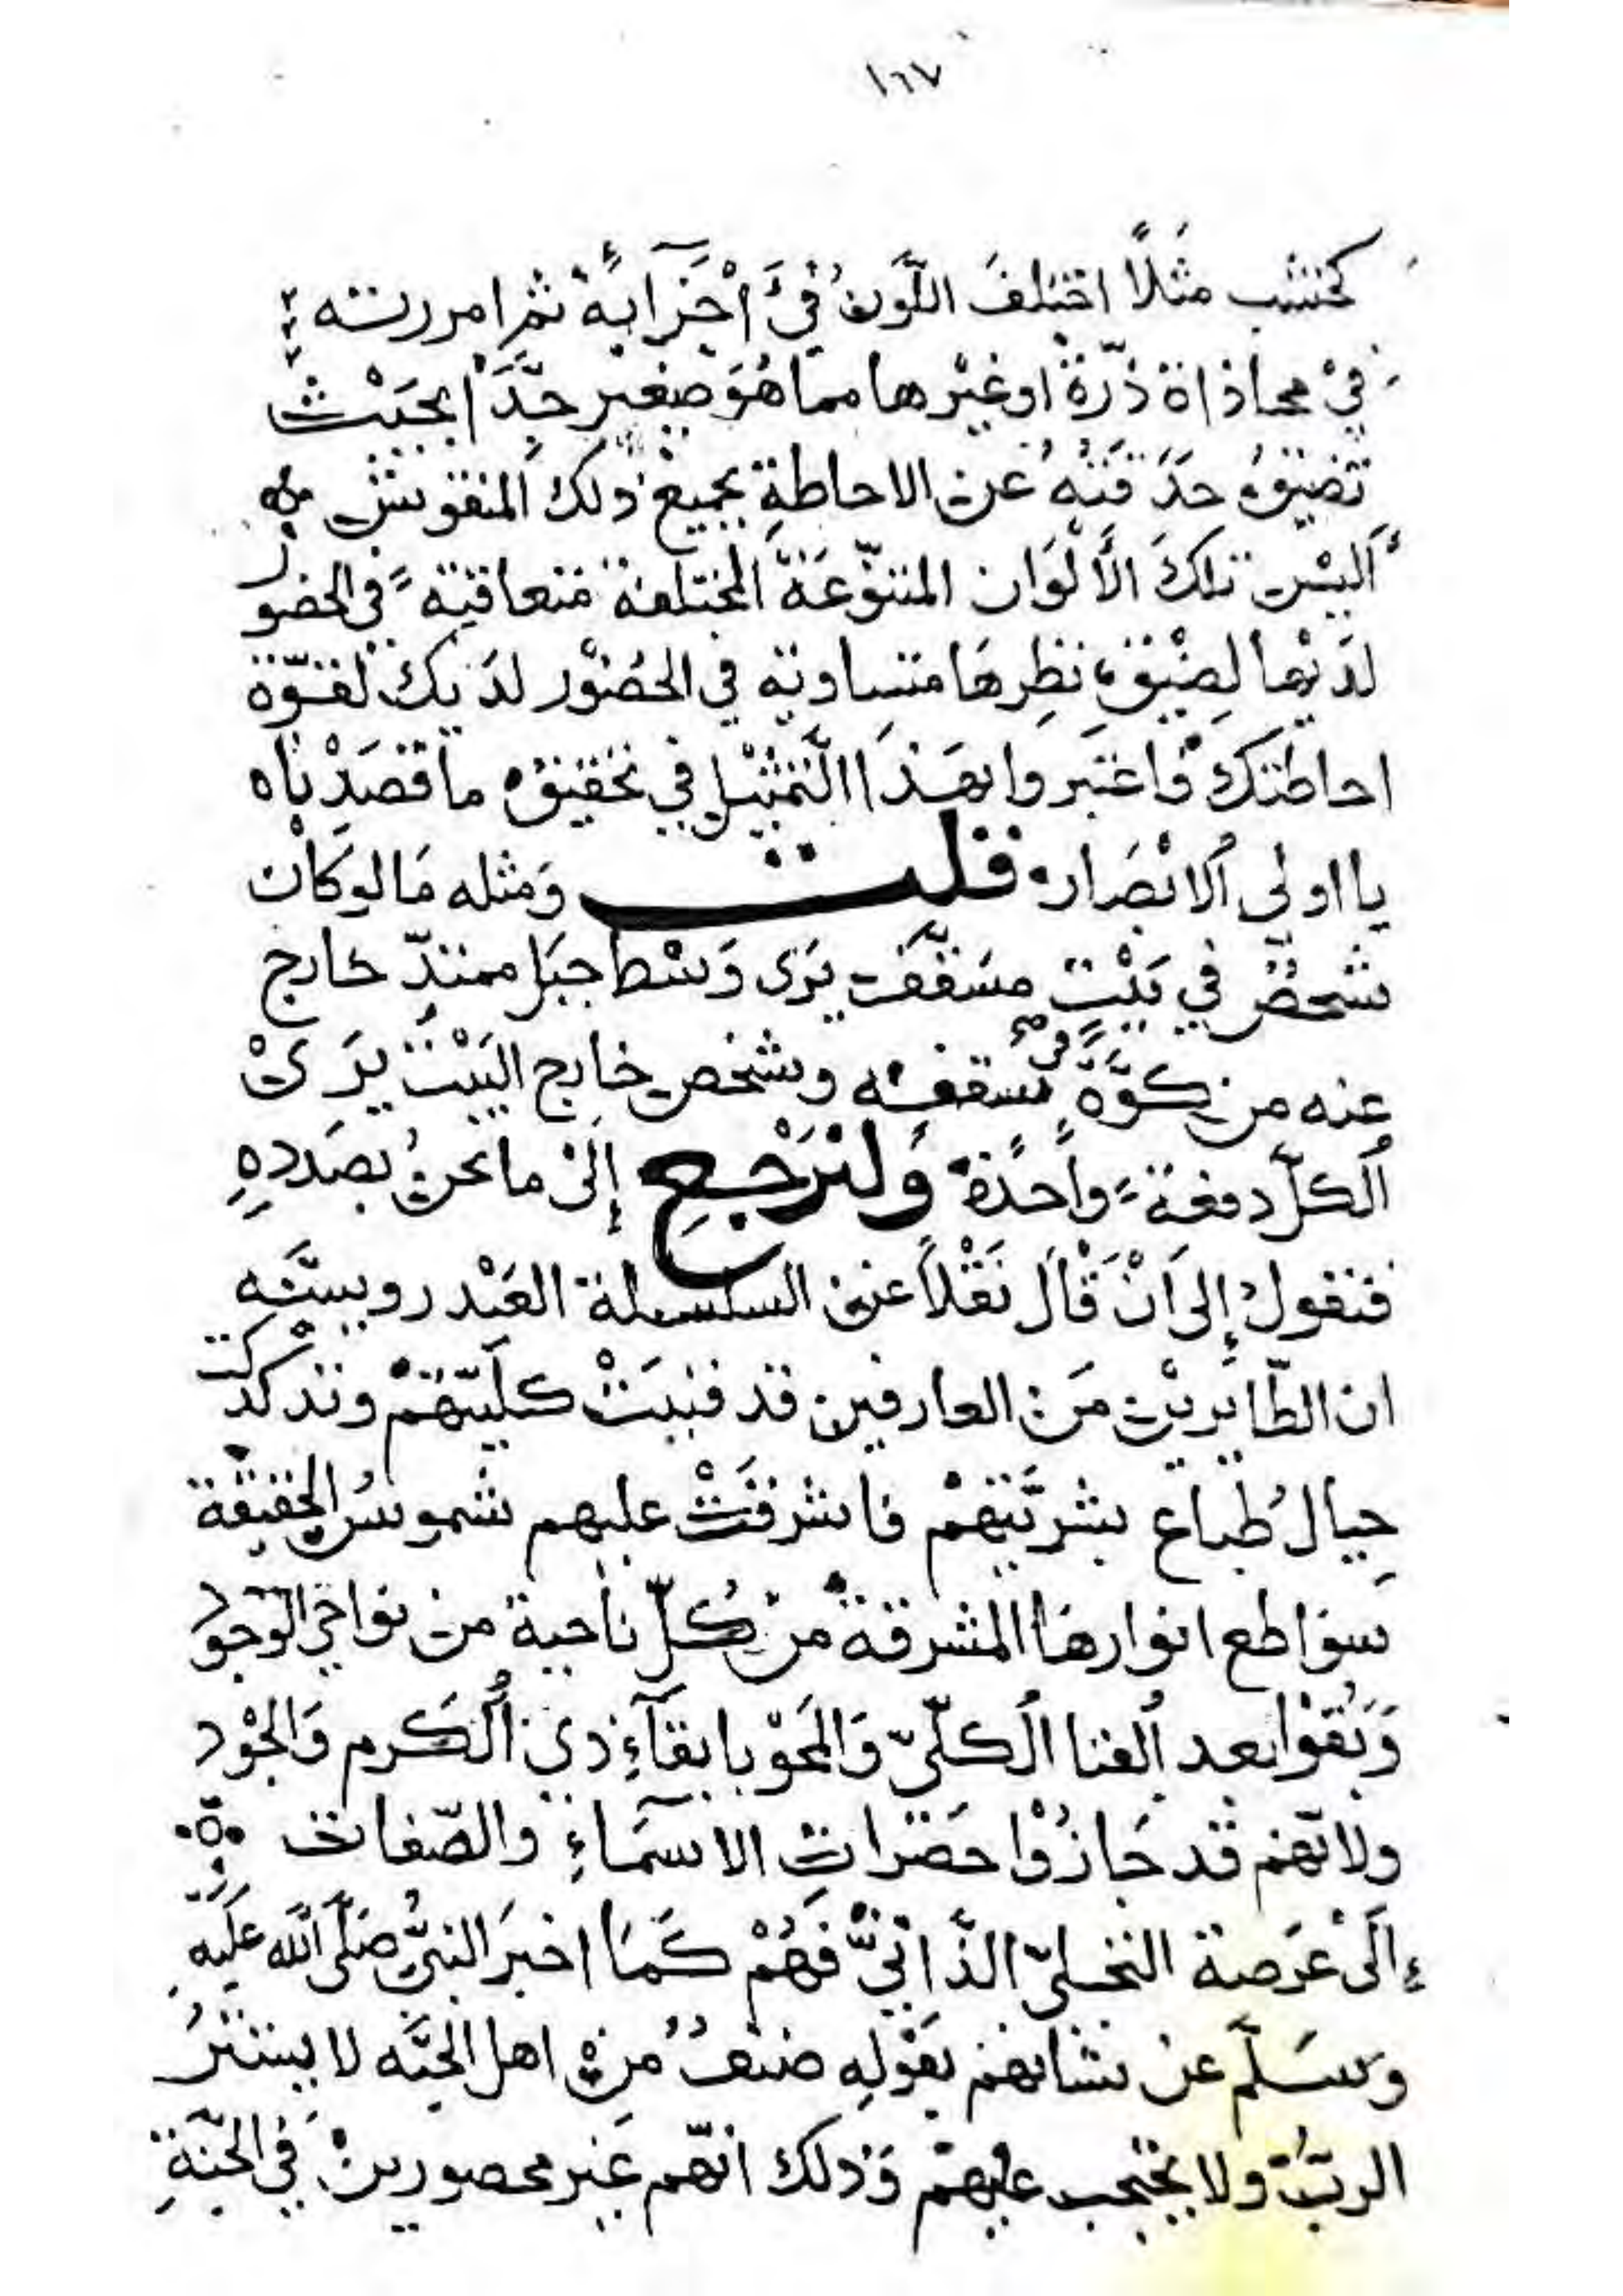 ١٦٧
كخشب مثلًا اختلفَ اللَّونُ فيْ أَجْزَآئِهْ ثم امررته
فيْ محاذاة ذرّة اوغيْرها مما هُوَ صغير جدًّا بحيْث
تضيقُ حدَقتُهُ عن الاحاطةِ بجميعْ ذلك المنقوش منه
أليْس تلكَ الأَلْوَان المتنوّعَةَ المختلفة متعاقبة في الحضور
لدَيْها لِضيْق نظرِهَا متساوية في الحُضوْر لدَيك لقوّة
احاطتكْ فاعتبروا بهَذَا التَّمثيْلِ في تحقيق ما قصَدْناه
يا اولي الابْصَار قلت وَمثله مَا لو كان
شخصٌ في بَيْت مسَقَّف يرَى وَسْط جبَل ممتدّ خارج
عنه من كوَّةٍ في سقفه وشخص خارج البَيْت يَرَىْ
الكلّ دفعة واحدة وَلنرْجِعِ إِلىْ ما نحنُ بصَددِهِ
فنقولُ إِلى اَنْ قَالَ نَقْلاً عن السلسلة العَيْدروسيَّه
ان الطّايريْن مَن العارفين قد فنيَتْ كليّتهمْ وتدكدكت
جِبال طُباع بشريَّتهمْ فاشرقَتْ عليهم شموسُ الحقيقة
سواطع انوارهَا المشرقة من كلّ ناحية من نواحي الوجود
وَبَقوْا بعد الفنا الكلّيّ وَالمَحْو بابقآءِ ذي الكَرم وَالجُوْد
ولانّهم قد جَازُوْا حضرَاتِ الاسمَآءِ والصّفات
إِلَىْ عَرَصة التجليّ الذَّاتيّ فَهُمْ كَمَا اخبرَ النبيُّ صَلَّى الله عَلَيه
وَسَلَّمَ عن شانهم بقَوْلِهِ صنفٌ مِنْ اهل الجنَّه لا يستتر
الربُّ ولا يحتجب عليهمْ وَذلك انّهم غير محصورينْ في الجنّةِ